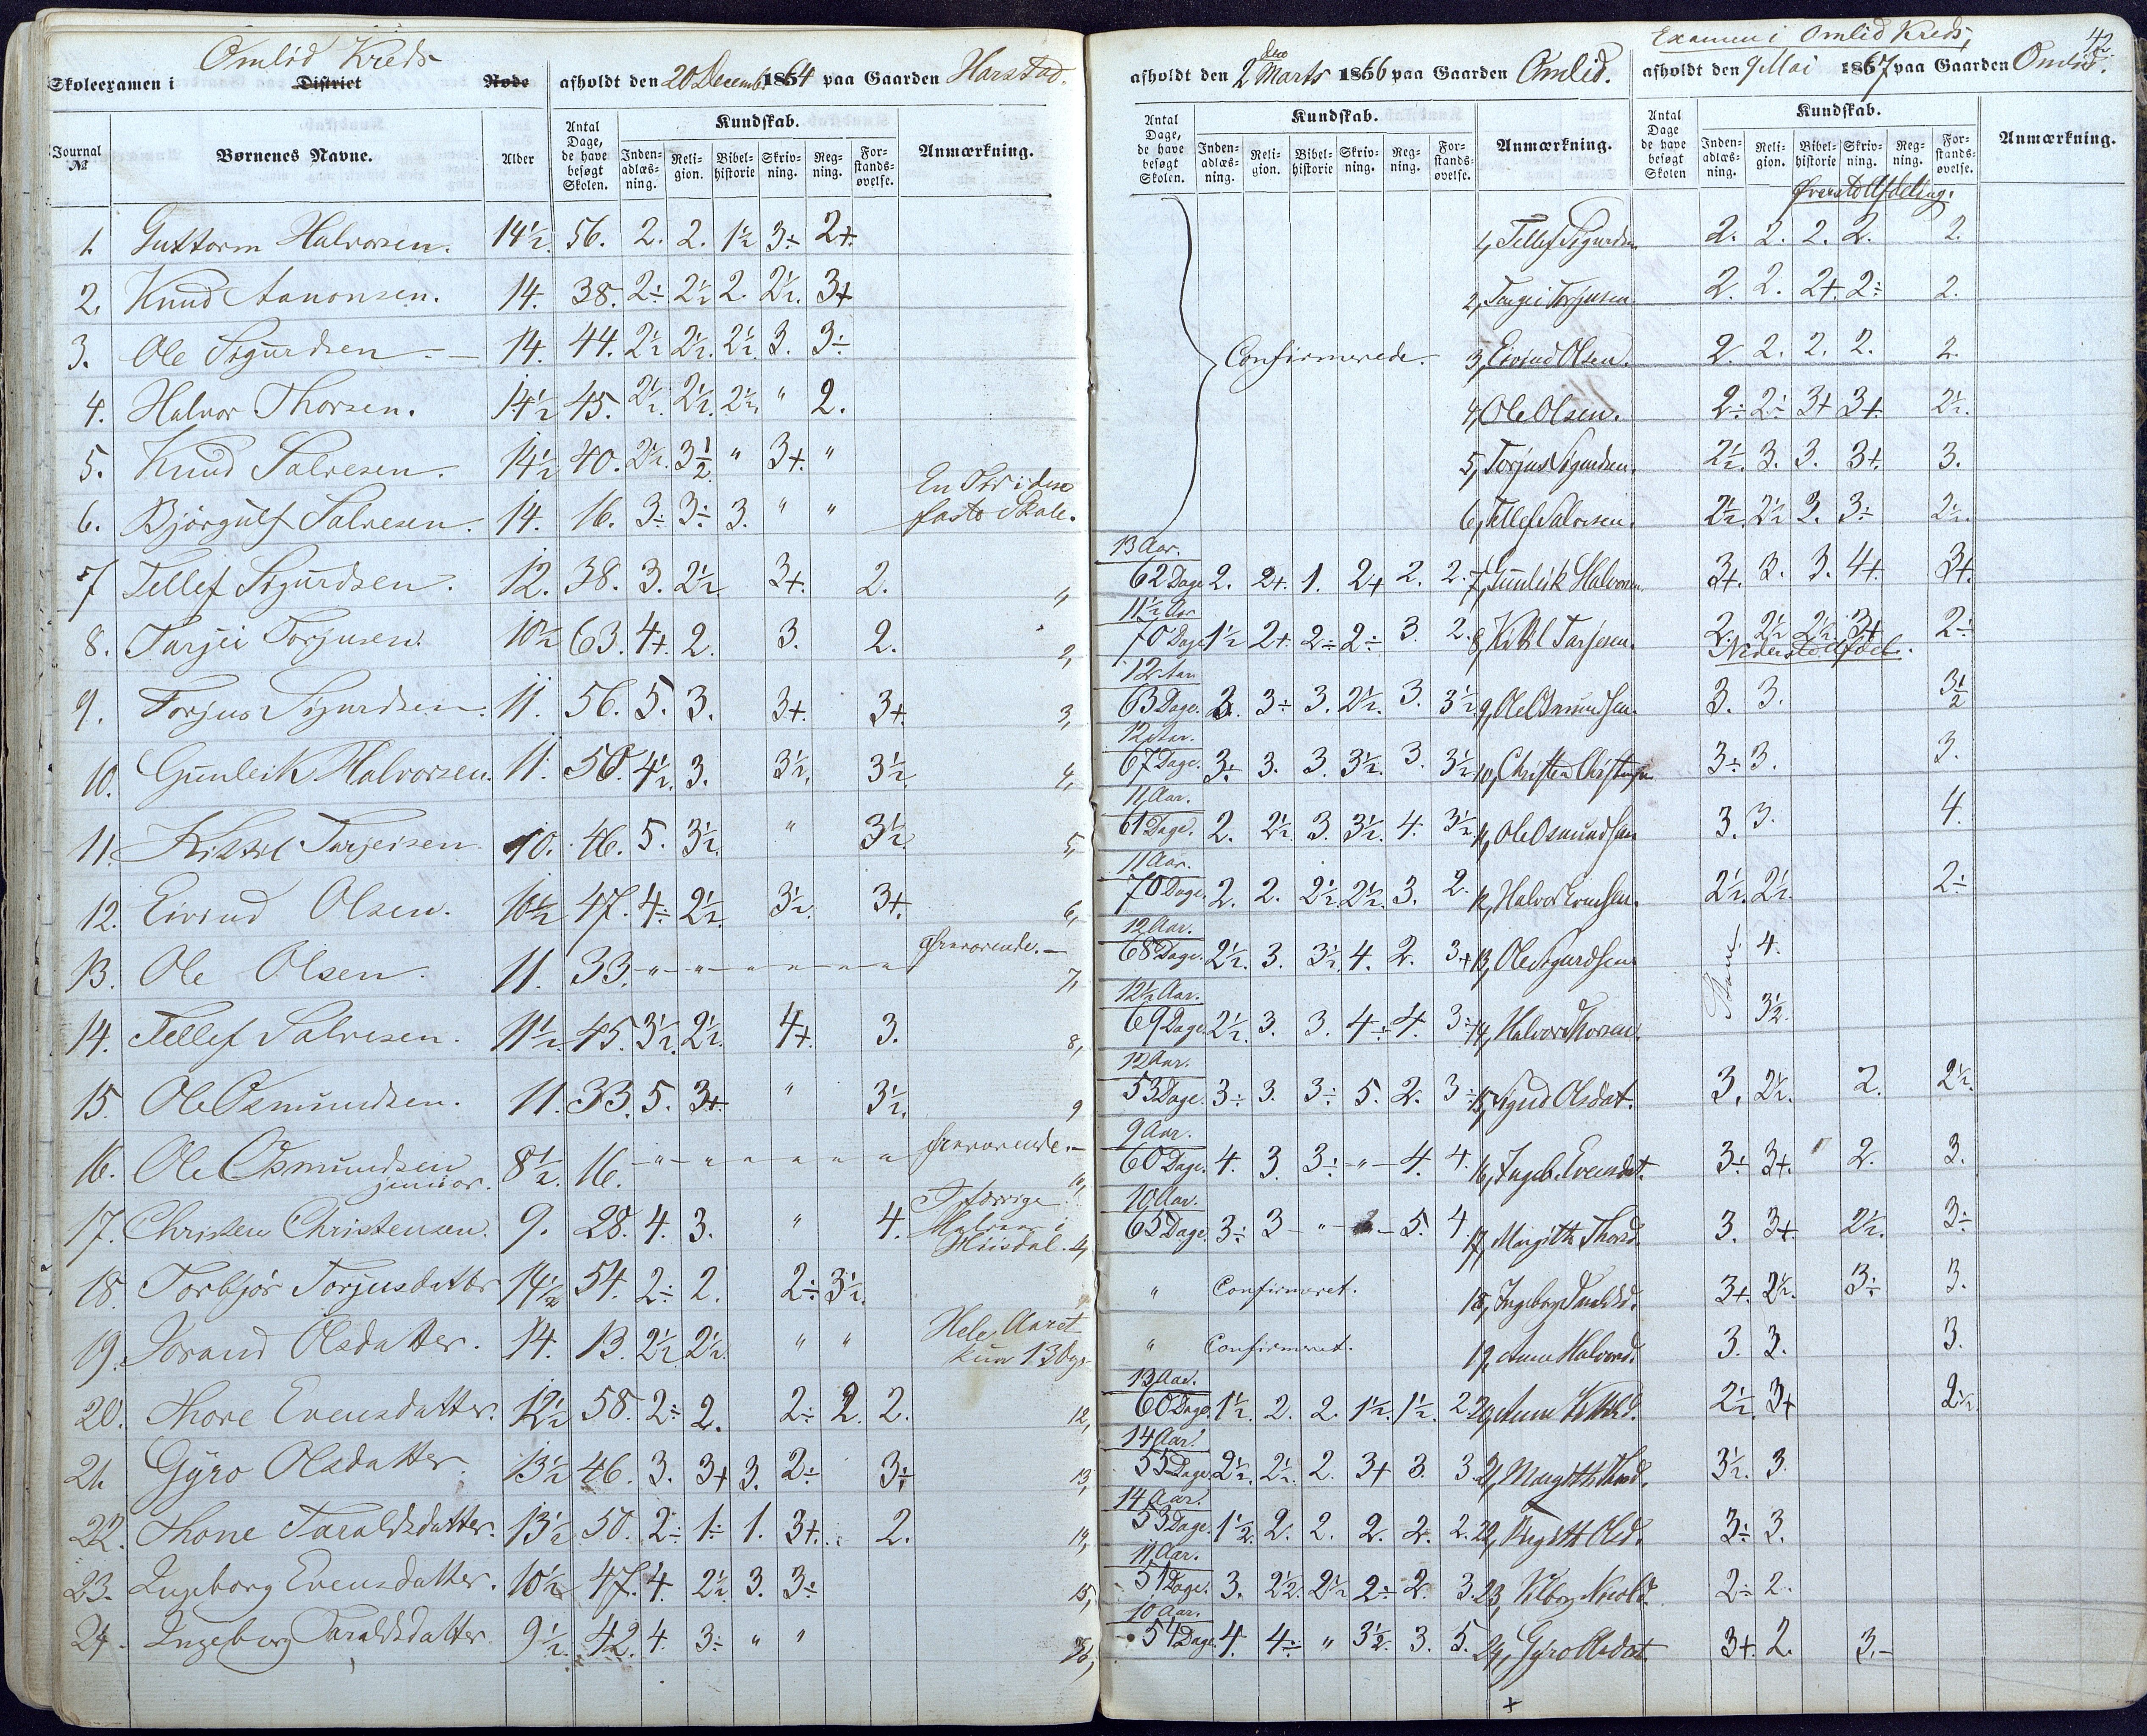 Omlid Kreds
Skoleexamen i District Rode afholdt den 20 Decemb. 1864 paa Gaarden Harstad.
Journal № Børnenes Navne. Alder Antal Dage, de have besøgt Skolen. Kundskab. Inden-adlæs-ning. Reli-gion. Bibel-historie Skriv-ning. Reg-ning. For-stands-øvelse. Anmærkning.
1. Guttorm Halvorsen. 14½ 56. 2. 2. 1½ 3÷ 2+.
2. Knud Aanonsen. 14. 38. 2÷ 2½ 2. 2½. 3+
3. Ole Sigurdsen 14. 44. 2½ 2½. 2½. 3. 3÷
4. Halvor Thorsen. 14½ 45. 2½. 2½. 2½. " 2.
5. Knud Salvesen. 14½ 40. 2½. 3½ " 3+. "
6. Bjørgulf Salvesen. 14. 16. 3÷ 3÷ 3. " " En Tid i den faste Skole.
7 Tellef Sigurdsen. 12. 38. 3. 2½. 3+. 2. "
8. Tarjei Torjusen. 10½ 63. 4+. 2. 3. 2. 2,
9. Torjus Sigurdsen. 11. 56. 5. 3. 3+. 3+. 3,
10. Gunleik Halvorsen. 11. 50. 4½. 3. 3½. 3½. 4,
11. Kittil Tarjeisen 10. 46. 5. 3½. " 3½. 5,
12. Eivind Olsen. 10½ 47. 4÷ 2½. 3½. 3+. 6,
13. Ole Olsen. 11. 33. " " " " " " Fraværende. 7,
14. Tellef Salvesen. 11½. 45. 3½. 2½. 4+. 3. 8,
15. Ole Osmundsen. 11. 33. 5. 3+. " 3½. 9
16. Ole Osmundsen junior. 8½. 16. " " " " " " Fraværende. 10,
17. Christen Christensen. 9. 28. 4. 3. " 4.
18. Torbjør Torjusdatter 14½ 54. 2÷ 2. 2÷ 3½.
19. Jorand Olsdatter. 14. 13. 2½ 2½. " " Hele Aaret kun 13 Dage
20. Thore Evensdatter. 12½ 58. 2÷ 2. 2÷ 2. 2. 12,
21. Gyro Olsdatter 13½ 46. 3. 3+ 3. 2÷ 3÷ 13,
22. Thone Taraldsdatter. 13½ 50. 2÷ 1÷ 1. 3+. 2. 14,
23. Ingeborg Evensdatter. 10½ 47. 4. 2½ 3. 3÷ 15,
24. Ingeborg Taraldsdatter. 9½. 42. 4. 3÷ " " 16,
afholdt den 2den Marts 1866 paa Gaarden Omlid.
Antal Dage, de have besøgt Skolen. Kundskab. Inden-adlæs-ning. Reli-gion. Bibel-historie Skriv-ning. Reg-ning. For-stands-øvelse. Anmærkning.
Confirmerede.
13 Aar.
62 Dage 2. 2+. 1. 2+ 2. 2.
11½ Aar
70 Dage 1½ 2+ 2÷ 2÷ 3. 2.
12 Aar
63 Dage. 3. 3÷ 3. 2½. 3. 3½
12 Aar.
67 Dage. 3÷ 3. 3. 3½. 3. 3½
11 Aar.
61 Dage. 2. 2½. 3. 3½. 4. 3½
11 Aar.
70 Dage. 2. 2. 2½ 2½. 3. 2.
12 Aar.
68 Dage. 2½. 3. 3½. 4. 2. 3+
12½ Aar.
69 Dage 2½. 3. 3. 4÷ 4. 3÷
12 Aar.
53 Dage. 3÷ 3. 3÷ 5. 2. 3÷
9 Aar.
60 Dage. 4. 3 3÷ " 4. 4.
10 Aar.
65 Dage. 3÷ 3 " 5. 4.
" Confirmeret.
" Confirmeret.
13 Aar.
60 Dage 1½. 2. 2. 1½. 1½. 2.
14 Aar.
55 Dage 2½. 2½. 2. 3+ 3. 3.
14 Aar.
53 Dage. 1½. 2. 2. 2. 2. 2.
11 Aar.
51 Dage. 3. 2½. 2½ 2÷ 2. 3.
10 Aar.
54 Dage 4. 4÷ " 3½. 3. 5.
Examen i Omlid Kreds,
42
afholdt den 9 Mai 1867 paa Gaarden Omlid.
Antal Dage de have besøgt Skolen Kundskab. Inden-adlæs-ning. Reli-gion. Bibel-historie Skriv-ning. Reg-ning. For-stands-øvelse. Anmærkning.
Øverste Afdeling.
1, Tellef Sigurdsen 2. 2. 2. 2. 2.
2, Tarjei Torjusen 2. 2. 2+. 2÷ 2.
3, Eivind Olsen. 2. 2. 2. 2. 2.
4, Ole Olsen. 2÷ 2÷ 3+ 3+. 2½.
5, Torjus Sigurdsen. 2½. 3. 3. 3+. 3.
6, Tellef Salvesen. 2½. 2½ 3. 3÷ 2½.
7, Gunleik Halvorsen. 3+. 3. 3. 4+. 3+.
8, Kittil Tarjesen. 2. 2½ 2½. 3+ 2÷
Nederste Afdel.
9, Ole Osmundsen. 3. 3. 3½
10, Christen Christensen 3÷ 3. 3.
11, Ole Osmundsen 3. 3. 4.
12, Halvor Evensen. 2½. 2½. 2÷
13, Ole Sigurdsen Stav. 4.
14, Halvor Thorsen. 3½.
15, Sigrid Olsdat. 3. 2½. 2. 2½.
16, Ingeb. Evensdat. 3÷ 3+. 2. 3.
17, Margitte Thorsd. 3. 3+. 2½. 3÷
18, Ingeborg Taraldsd. 3+. 2½. 3÷ 3.
19, Anne Halvorsd. 3. 3. 3.
20, Anne Kittilsd. 2½. 3+ 2½.
21, Margitte Thorsd. 3½. 3.
22, Birgitt Olsd. 3÷ 3.
23, 2÷ 2.
24, Gyro Olsdat. 3+. 2. 3.-
+